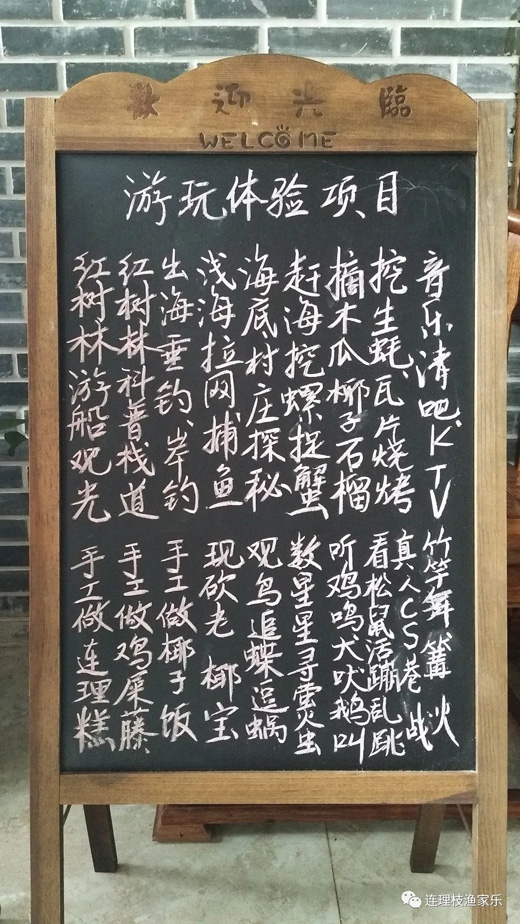 歡迎光臨
WELCOME
游玩体验项目
红树林游船观光
红树林科普栈道
出海垂钓、岸钓
浅海拉网捕鱼
海底村庄探秘
赶海挖螺捉蟹
摘木瓜椰子石榴
挖生蚝、瓦片烧烤
音乐清吧、KTV
手工做连理糕
手工做鸡屎藤
手工做椰子饭
现砍老椰宝
观鸟追蝶逗蜗
数星星寻虫
听鸡鸣犬吠鹅叫
看松鼠活蹦乱跳
真人CS巷战
竹竿舞篝火
连理枝渔家乐